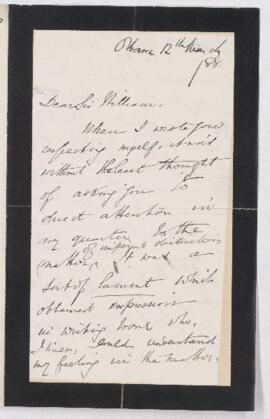 Ottawa 12th March
/88
Dear Sir William.
When I wrote you
respecting myself, it was
without the least thought
of asking you to
direct attention in
any quarter to the
of imperial distinctions
matter. It was a
sort of lament which
obtained expression
in writing to one who,
I knew, could understand
my feeling in the matter.